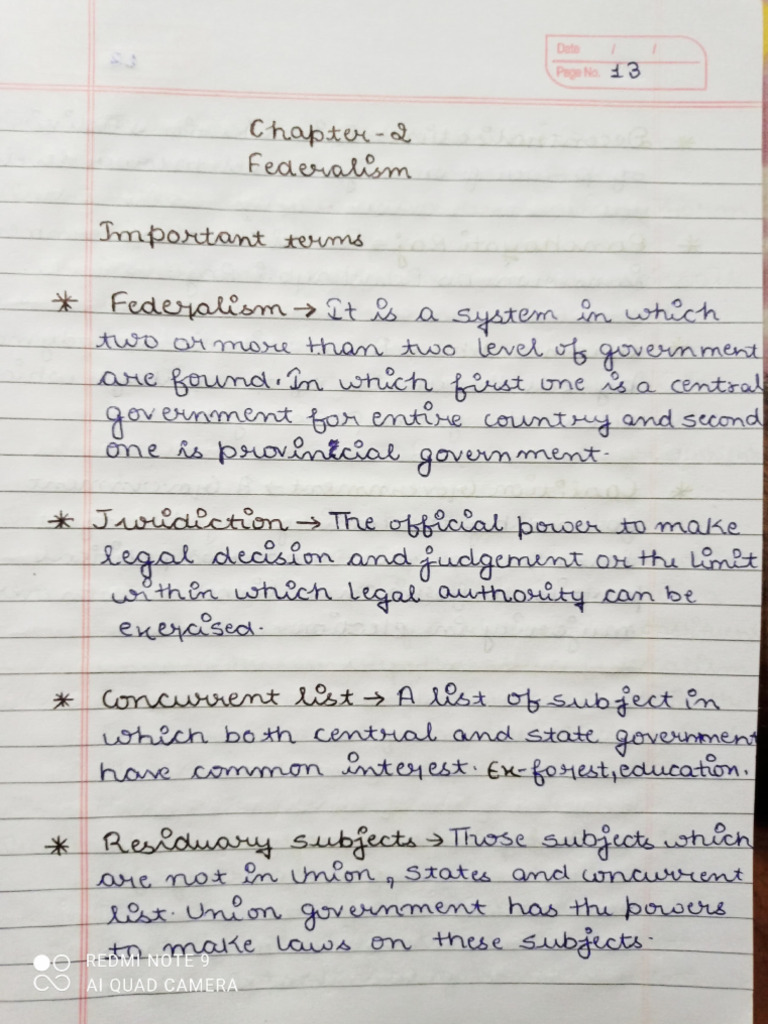 Date / /
Page No. 13
Chapter-2
Federalism
Important terms
* Federalism → It is a system in which
two or more than two level of government
are found. In which first one is a central
government for entire country and second
one is provinicial government.
* Juridiction → The official power to make
legal decision and judgement or the limit
within which legal authority can be
exercised.
* Concurrent list → A list of subject in
which both central and state government
have common interest. Ex-forest, education.
* Residuary subjects → Those subjects which
are not in Union, States and concurrent
list. Union government has the powers
to make laws on these subjects.
REDMI NOTE 9
AI QUAD CAMERA